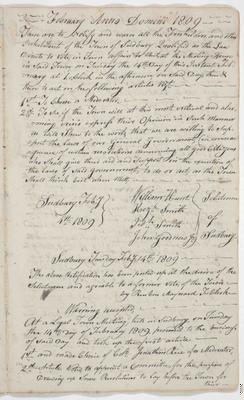 February Anno Domini 1809
These are to Notify and warn all the Freeholders and other
Inhabitants of the Town of Sudbury Qualified as the Law
directs to Vote in Town affairs to meet at the Meeting House
in said Town on Tuesday the 14th Day of this Instant Feb
ruary at 1 Clock in the afternoon on Said Day then &
there to act on the following articles viz
1st To Chuse a Moderator,
2d To See if the Town will at this most critical and alar
ming crisis express their Opinion in Such manner
as tell them to the world that we are willing to sup
port the Laws of our General Government in
of the Laws of said government, to do or act as the Town
Shall think best when Met
Sudbury Feby
1809
William Hunt
Smith
Smith
John Goodnow Jr
Selectmen
of
Sudbury
Sudbury Tuesday Feby 14th 1809
The above Notification has been posted up at the desire of the
Selectmen and agreable to a former vote of the Town
by Reuben Maynard T Clerk
Warning accepted,
At a Legal Town Meeting held in Sudbury, on Tuesday
the 14th day of February 1809 proceeded to the business
of Said day and took up the first article
1st and made Choice of Jonathan Rice for Moderator,
2d article Voted to appoint a Committee for the purpose of
Drawing up Some Resolutions to lay before the Town for
their